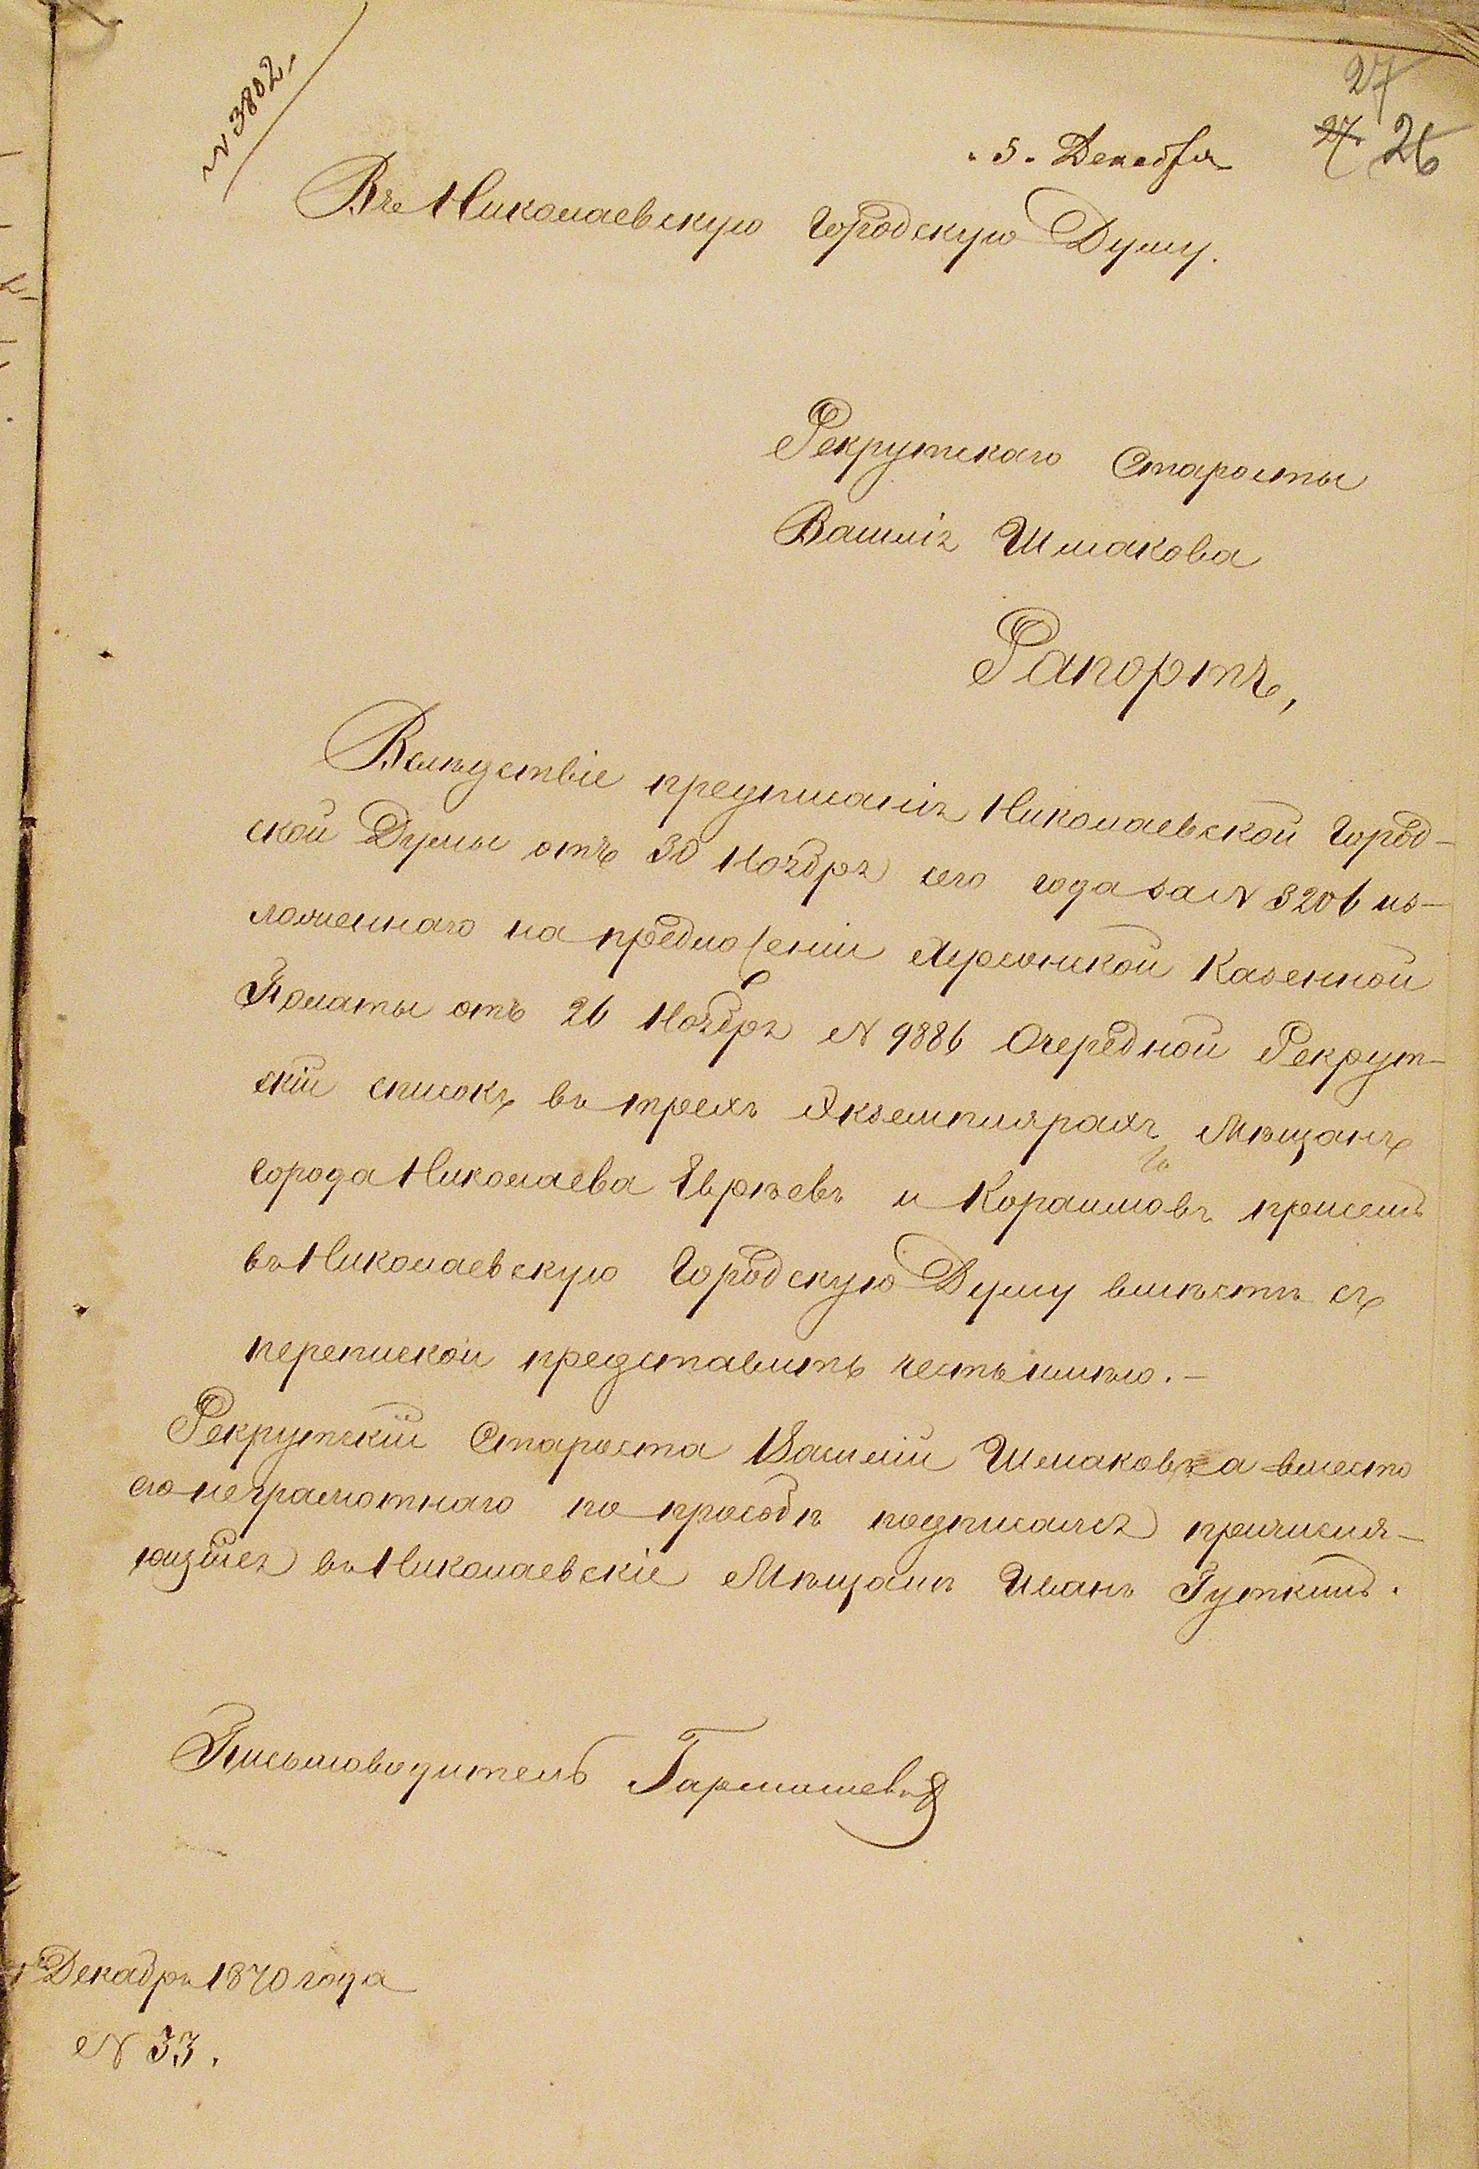 N 3802.
27
27 26
. 5. Декабря
Въ Николаевскую Городскую Думу.
Рекрутскаго Старосты
Василія Шмакова
Рапортъ,
Вслѣдствіе предписанія Николаевской Город-
ской Думы отъ 30 Ноября сего года за N 3206 из-
ложеннаго на предложеніи Херсонской Казенной
Полаты отъ 26 Ноября N 9886 Очередной Рекрут-
скій списокъ въ трехъ Экземплярахъ Мѣщанъ
города Николаева Евреевъ и Кораимовъ при семъ
въ Николаевскую Городскую Думу вмѣстѣ съ
перепиской представить честь имѣю. -
Рекрутскій Староста Василій Шмаковъ а вместо
его неграмотнаго по прозьбѣ подписался причисля-
ющійся въ Николаевскіе Мѣщанѣ Иванъ Гуткинъ.
Письмоводитель
Декабря 1870 года
N 33.